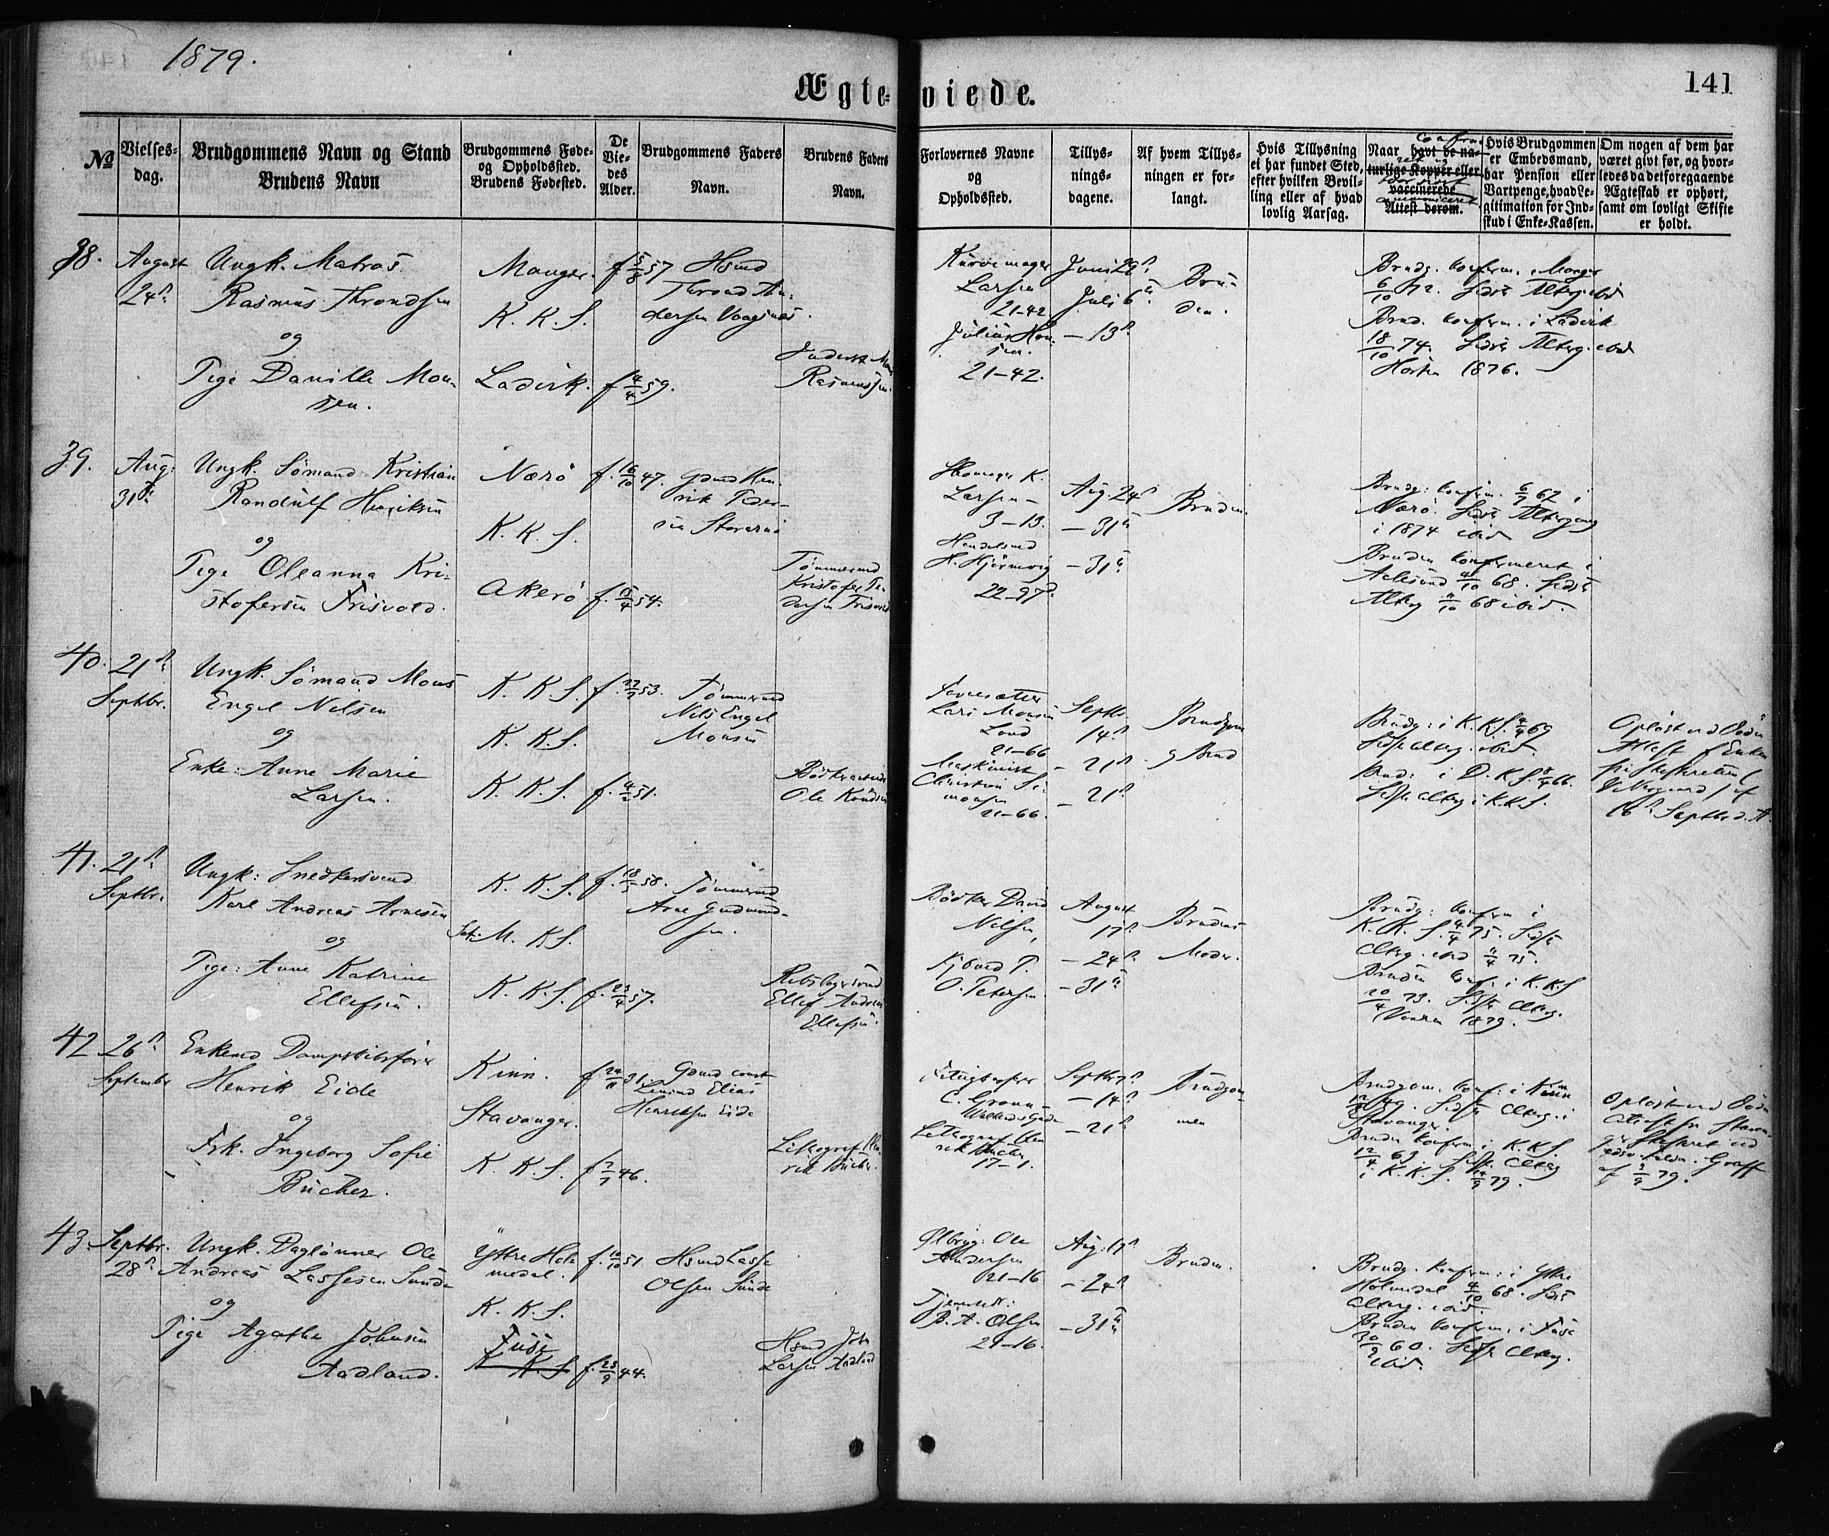 1879.
141
Ægteviede.
№
Vielses-
dag.
Brudgommens Navn og Stand
Brudens Navn
Brudgommens Føde-
og Opholdssted.
Brudens Fødested.
De
Vie-
des
Alder.
Brudgommens Faders
Navn.
Brudens Faders
Navn.
Forlovernes Navne
og
Opholdssted.
Tillys-
nings-
dagene.
Af hvem Tillys-
ningen er for-
langt.
Hvis Tillysning
ei har fundet Sted,
efter hvilken Bevil-
ling eller af hvad
lovlig Aarsag.
Naar havt de na-
turlige Kopper eller
vaccinerede
Attest derom.
Hvis Brudgommen
er Embedsmand,
har Pension eller
Vartpenge, hvad Le-
gitimation for Ind-
skud i Enke-Kassen.
Om nogen af dem har
været gift før, og hvor-
ledes da det foregaaende
Ægteskab er ophørt,
samt om lovligt Skifte
er holdt.
38.
August
24
Ungk. Matros
Rasmus Throndsen
og
Pige Danille Mon-
sen.
Manger.
K. K. S.
Ladvik.
f. 5/8 57
f. 4/4 59.
Hsmd
Thrond An-
dersen Vaagenes.
Rasmussen
Kurvemager
Larsen
21-42
Julius Han-
sen.
21-42.
Juni 29
Juli 6
- 13
Bru-
den.
Brudg. konfirm. i Manger
6/10 72. Sidst Alterg. ibid
Brud. konfirm. i Ladvik
18/10 74. Sidst Alterg. ibid
Høsten 1876.
39.
Aug:
31
Ungk. Sømand Kristian
Randulf Henriksen
og
Pige Oleanna Kri-
stofersen Frisvold.
Nærø
K. K. S.
Akerø
f. 16/10 47.
f. 5/4 54.
Gmd Hen-
rik Peder-
sen
Tømmermd
Kristofer Pe-
dersen Frisvold
Skomager K.
Larsen
3-13.
Handelsmd
H. Hjørmvig
22-97
Aug. 24
- 31
- 31
Bruden.
Brudg. konfirm. 6/7 62 i
Nærø. Sidst Altergang
i 1874 ibid
Bruden konfirmeret i
Aalesund 4/10 68. Sidst
Alterg 11/10 68 ibid.
40.
21
Septbr.
Ungk. Sømand Mons
Engel Nilsen
og
Enke: Anne Marie
Larsen.
K. K. S.
K. K. S.
K. K. S.
f. 22/7 53.
f. 4/2 51.
Tømmermd
Nils Engel
Monsen
Ole Knudsen
Lars Monsen
Lund
21-66
Maskinist
Christian Si-
monsen
21-66.
Septbr.
14
- 21
- 21
Brudgom
og Brud
Brudg: i K. K. S. 4/4 69
Sidst Alterg. ibid.
Brud: i D. K. S. 8/4 66.
Sidst Alterg i K.K.S.
Opløst ved Døden
Attest f. Enken
fra Skifteretten (
Vibegaard) af
16 Septbr d. A.
41.
21
Septbr.
Ungk: Snedkersvend
Karl Andreas Arnesen
og
Pige: Anne Katrine
Ellefsen.
K. K. S.
M. K. S.
K. K. S.
f. 18/5 58.
f. 23/4 57.
Tømmermd
Arne Gudmund-
sen.
Rebslagersvend
Ellef Andreas
Ellefsen.
Bødker David
Nilsen,
Kjøbmd P.
O. Petersen
August
17
- 24
- 31
Brudens
Moder.
Brudg: konfirm i
K. K. S. 4/4 75. Sidst
Alterg. ibid 11/4 75.
Bruden konf. i K.K.S
20/4 73. Sidst Alterg.
Vaaren 1879.
42
26
September
Enkemd Dampskibsfører
Henrik Eide
og
Frk. Ingeborg Sofie
Bücher.
Kinn.
Stavanger.
K. K. S.
f. 24/11 31
f. 2/7 46.
Gmd const
Lensmd Elias
Henriksen Eide
Litograf Hen-
rik Bücher.
C. Grønn
Litograf Hen-
rik Bücher
17-1.
Septbr 7
- 14
- 21
Brudgom-
men
Brudgom. konf. i Kinn
Sidst Alterg. i
Stavanger.
Bruden konfirm. i K.K.S.
12/4 63. Sidst Alterg
i K.K.S. 79.
Opløst ved Døden
Graff
af 3/9 79.
43.
Septbr.
28
Ungk. Daglønner Ole
Andreas Lassesen Sunde
og
Pige Agathe Johnsen
Aadland.
Yttre Hol-
medal.
K. K. S.
Fuse
K. K. S
f. 10/10 51
f. 23/9 44.
Hsmd Lasse
Olsen Sunde
Hsmd John
Larsen Aadland
Ølbryg: Ole
Andersen
21-16
B. A. Olsen
21-16.
Aug: 17
- 24
- 31
Bruden.
Brudg. konfirm: i Yttre
Holmedal 4/10 68. Sidst
Alterg. ibid.
Bruden konfirm. i Fuse
30/9 60. Sidst Alterg.
ibid.